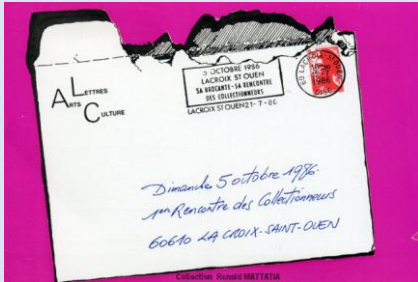 LETTRES
ARTS
CULTURE
5 OCTOBRE 1986
LACROIX ST OUEN
SA BROCANTE-SA RENCONTRE
DES COLLECTIONNEURS
LACROIX ST OUEN 21-7-86
60 LACROIX-ST-OUEN
1986
OISE
Dimanche 5 octobre 1986.
1ère Rencontre des Collectionneurs
60610 LA CROIX-SAINT-OUEN
Collection Ronald MATTATIA